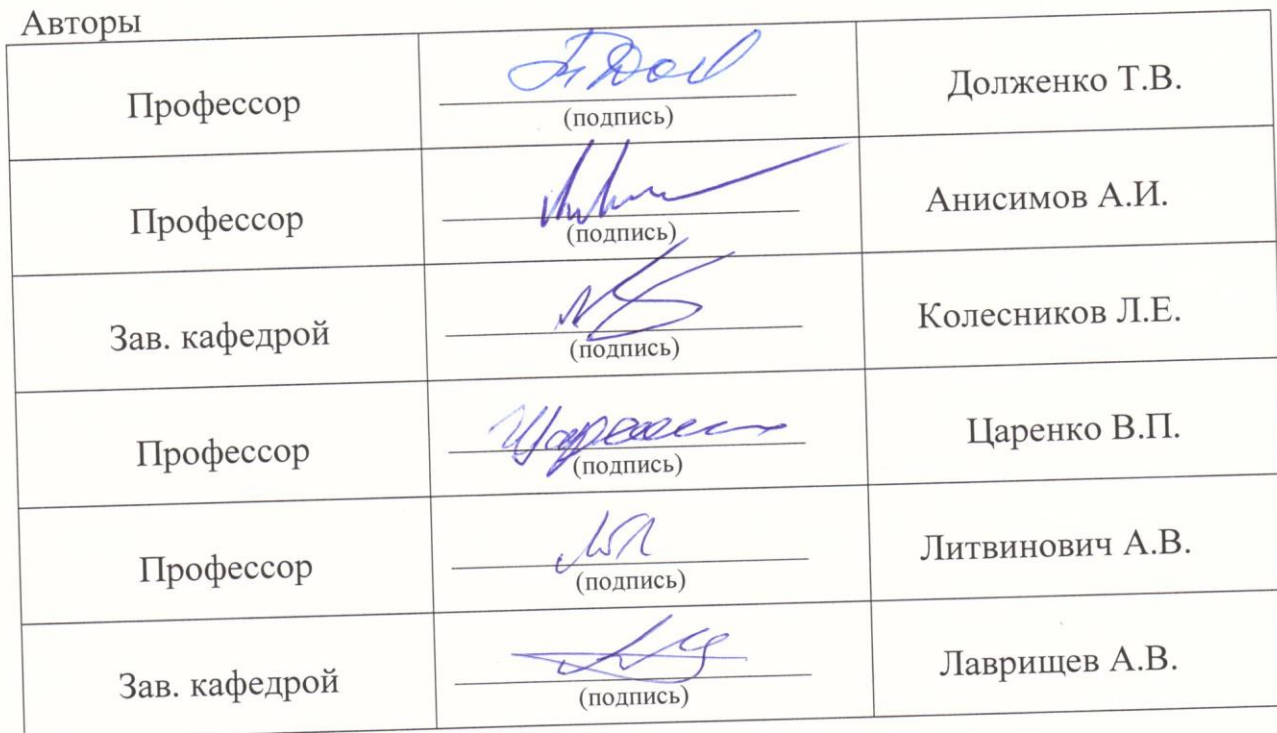 Авторы
Профессор
(подпись)
Долженко Т.В.
Профессор
(подпись)
Анисимов А.И.
Зав. кафедрой
(подпись)
Колесников Л.Е.
Профессор
(подпись)
Царенко В.П.
Профессор
(подпись)
Литвинович А.В.
Зав. кафедрой
(подпись)
Лаврищев А.В.